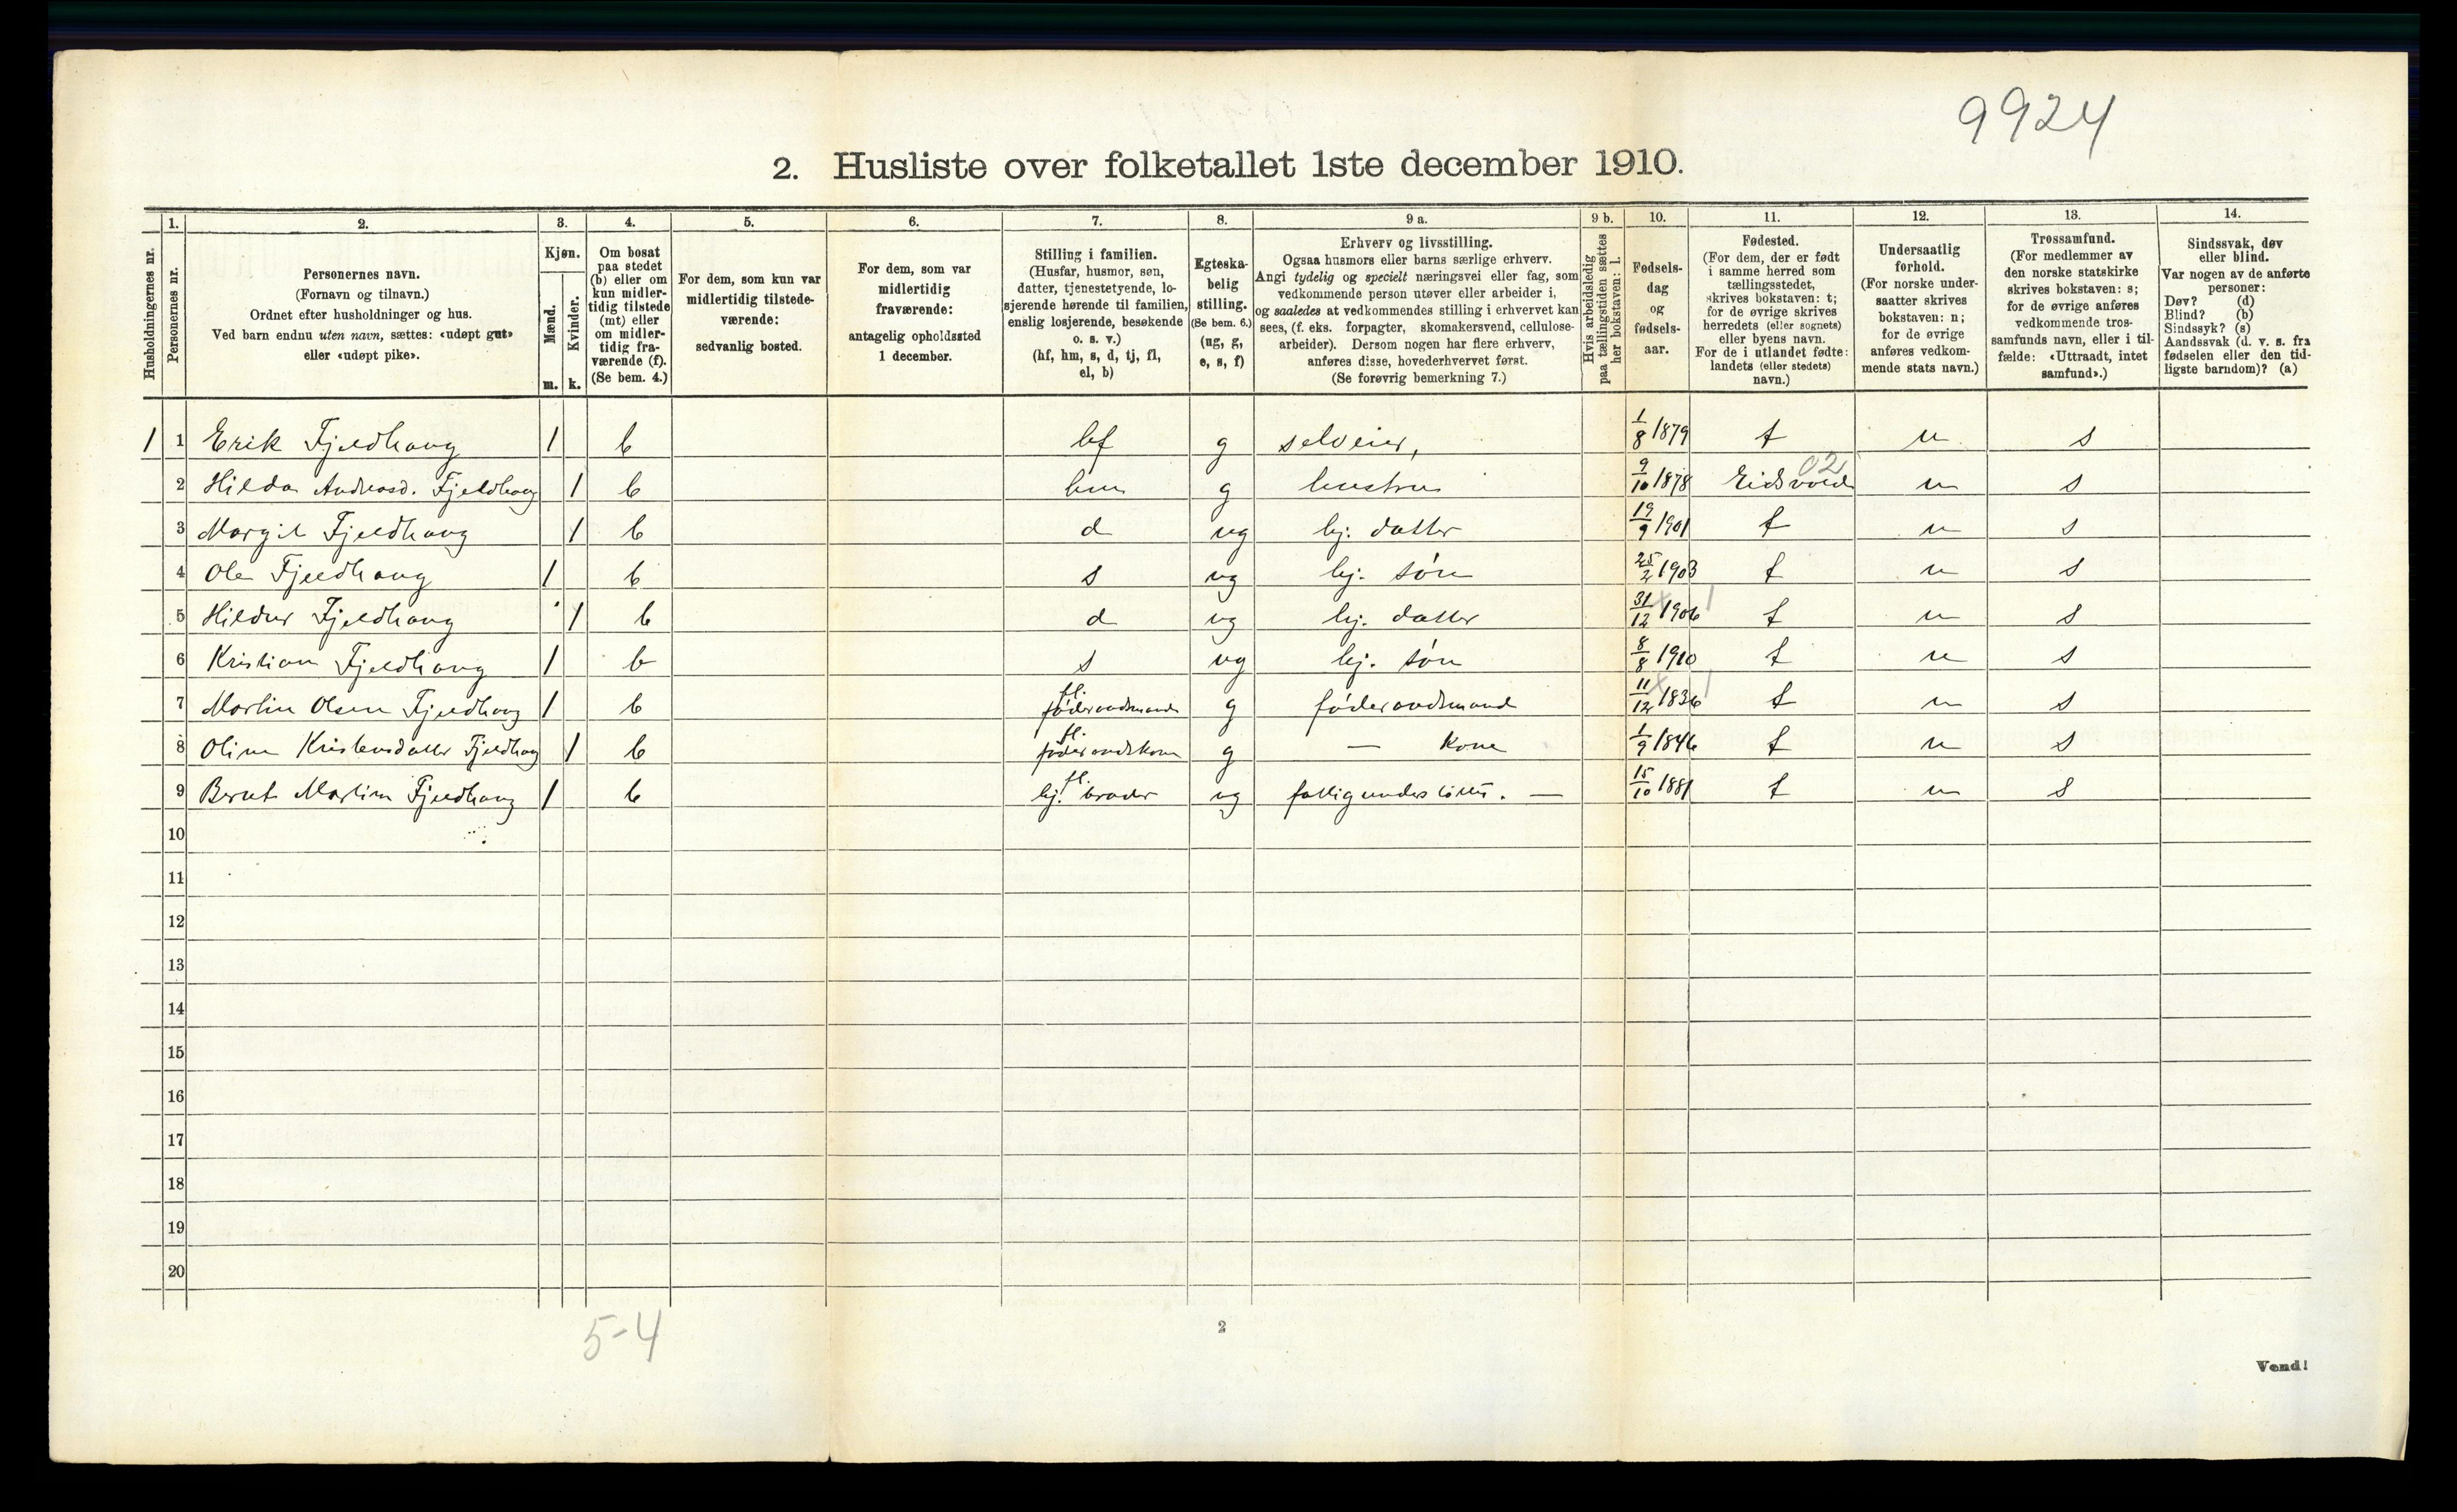 9924
2. Husliste over folketallet 1ste december 1910.
Husholdningernes nr.
1.
Personernes nr.
2.
Personernes navn.
(Fornavn og tilnavn.)
Ordnet efter husholdninger og hus.
Ved barn endnu uten navn, sættes: «udøpt gut»
eller «udøpt pike».
3.
Kjøn.
Mænd.
Kvinder.
m.
k.
4.
Om bosat
paa stedet
(b) eller om
kun midler-
tidig tilstede
(mt) eller
om midler-
tidig fra-
værende (f).
(Se bem. 4.)
5.
For dem, som kun var
midlertidig tilstede-
værende:
sedvanlig bosted.
6.
For dem, som var
midlertidig
fraværende:
antagelig opholdssted
1 december.
7.
Stilling i familien.
(Husfar, husmor, søn,
datter, tjenestetyende, lo-
sjerende hørende til familien,
enslig losjerende, besøkende
o. s. v.)
(hf, hm, s, d, tj, fl,
el, b)
8.
Egteska-
belig
stilling.
(Se bem. 6.)
(ug, g,
e, s, f)
9 a.
Erhverv og livsstilling.
Ogsaa husmors eller barns særlige erhverv.
Angi tydelig og specielt næringsvei eller fag, som
vedkommende person utøver eller arbeider i,
og saaledes at vedkommendes stilling i erhvervet kan
sees, (f. eks. forpagter, skomakersvend, cellulose-
arbeider). Dersom nogen har flere erhverv,
anføres disse, hovederhvervet først.
(Se forøvrig bemerkning 7.)
9 b.
Hvis arbeidsledig
paa tællingstiden sættes
her bokstaven: l.
10.
Fødsels-
dag
og
fødsels-
aar.
11.
Fødested.
(For dem, der er født
i samme herred som
tællingsstedet,
skrives bokstaven: t;
for de øvrige skrives
herredets (eller sognets)
eller byens navn.
For de i utlandet fødte:
landets (eller stedets)
navn.)
12.
Undersaatlig
forhold.
(For norske under-
saatter skrives
bokstaven: n;
for de øvrige
anføres vedkom-
mende stats navn.)
13.
Trossamfund.
(For medlemmer av
den norske statskirke
skrives bokstaven: s;
for de øvrige anføres
vedkommende tros-
samfunds navn, eller i til-
fælde: «Uttraadt, intet
samfund».)
14.
Sindssvak, døv
eller blind.
Var nogen av de anførte
personer:
Døv? (d)
Blind? (b)
Sindssyk? (s)
Aandssvak (d. v. s. fra
fødselen eller den tid-
ligste barndom)? (a)
1 1 Erik Fjeldhaug 1 b hf g selveier, 1/8 1879 t n s
2 Hilda Andreasd. Fjeldhaug 1 b hm g hustru 9/10 1878 Eidsvold 02 n s
3 Margit Fjeldhaug 1 b d ug hj. datter 19/9 1901 t n s
4 Ole Fjeldhaug 1 b s ug hj. søn 25/2 1903 t n s
5 Hildur Fjeldhaug 1 b d ug hj. datter 31/12 1906 t n s
6 Kristian Fjeldhaug 1 b s ug hj. søn 8/8 1910 t n s
7 Martin Olsen Fjeldhaug 1 b fl. føderaadsmand g føderaadsmand 11/12 1836 t n s
8 Oline Kristensdatter Fjeldhaug 1 b fl. føderaadskone g — Kone 1/9 1846 t n s
9 Bernt Martin Fjeldhaug 1 b fl. hj. broder ug fattigunderstøttet. — 15/10 1881 t n s
10
11
12
13
14
15
16
17
18
19
20
5-4
2
Vend!